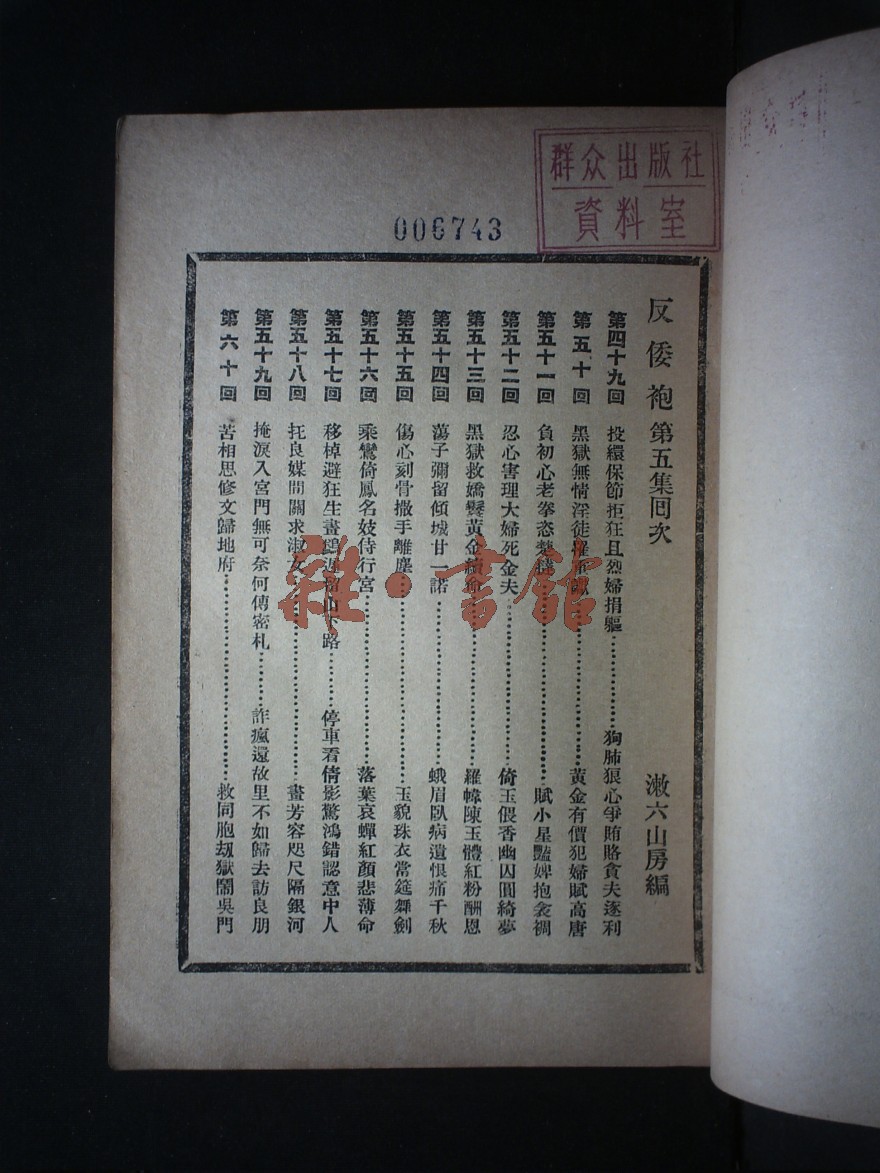 群众出版社
資料室
006743
反倭袍第五集回次
漱六山房編
第四十九回 投繯保節拒狂且烈婦捐軀 狗肺狼心爭賄賂貪夫逐利
第五十回 黑獄無情淫徒 黃金有價犯婦賦高唐
第五十一回 負初心老拳恣楚 賦小星豔婢抱衾裯
第五十二回 忍心害理大婦死金夫 倚玉偎香幽囚圓綺夢
第五十三回 黑獄救嬌鬟黃金續命 羅幃陳玉體紅粉酬恩
第五十四回 蕩子彌留傾城甘一諾 蛾眉臥病遺恨痛千秋
第五十五回 傷心刻骨撒手離塵 玉貌珠衣當筵舞劍
第五十六回 乘鸞倚鳳名妓侍行宮 落葉哀蟬紅顏悲薄命
第五十七回 移棹避狂生畫鷁 山下路 停車看倩影驚鴻錯認意中人
第五十八回 托良媒間關求淑女 畫芳容咫尺隔銀河
第五十九回 掩淚入宮門無可奈何傳密札 詐瘋還故里不如歸去訪良朋
第六十回 苦相思修文歸地府 救同胞刼獄鬧吳門
雜·書館